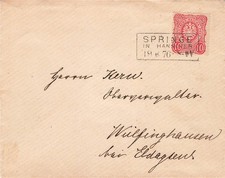 SPRINGE
IN HANNOVER
10
Herrn Kern.
Wülfinghausen
bei Eldagsen